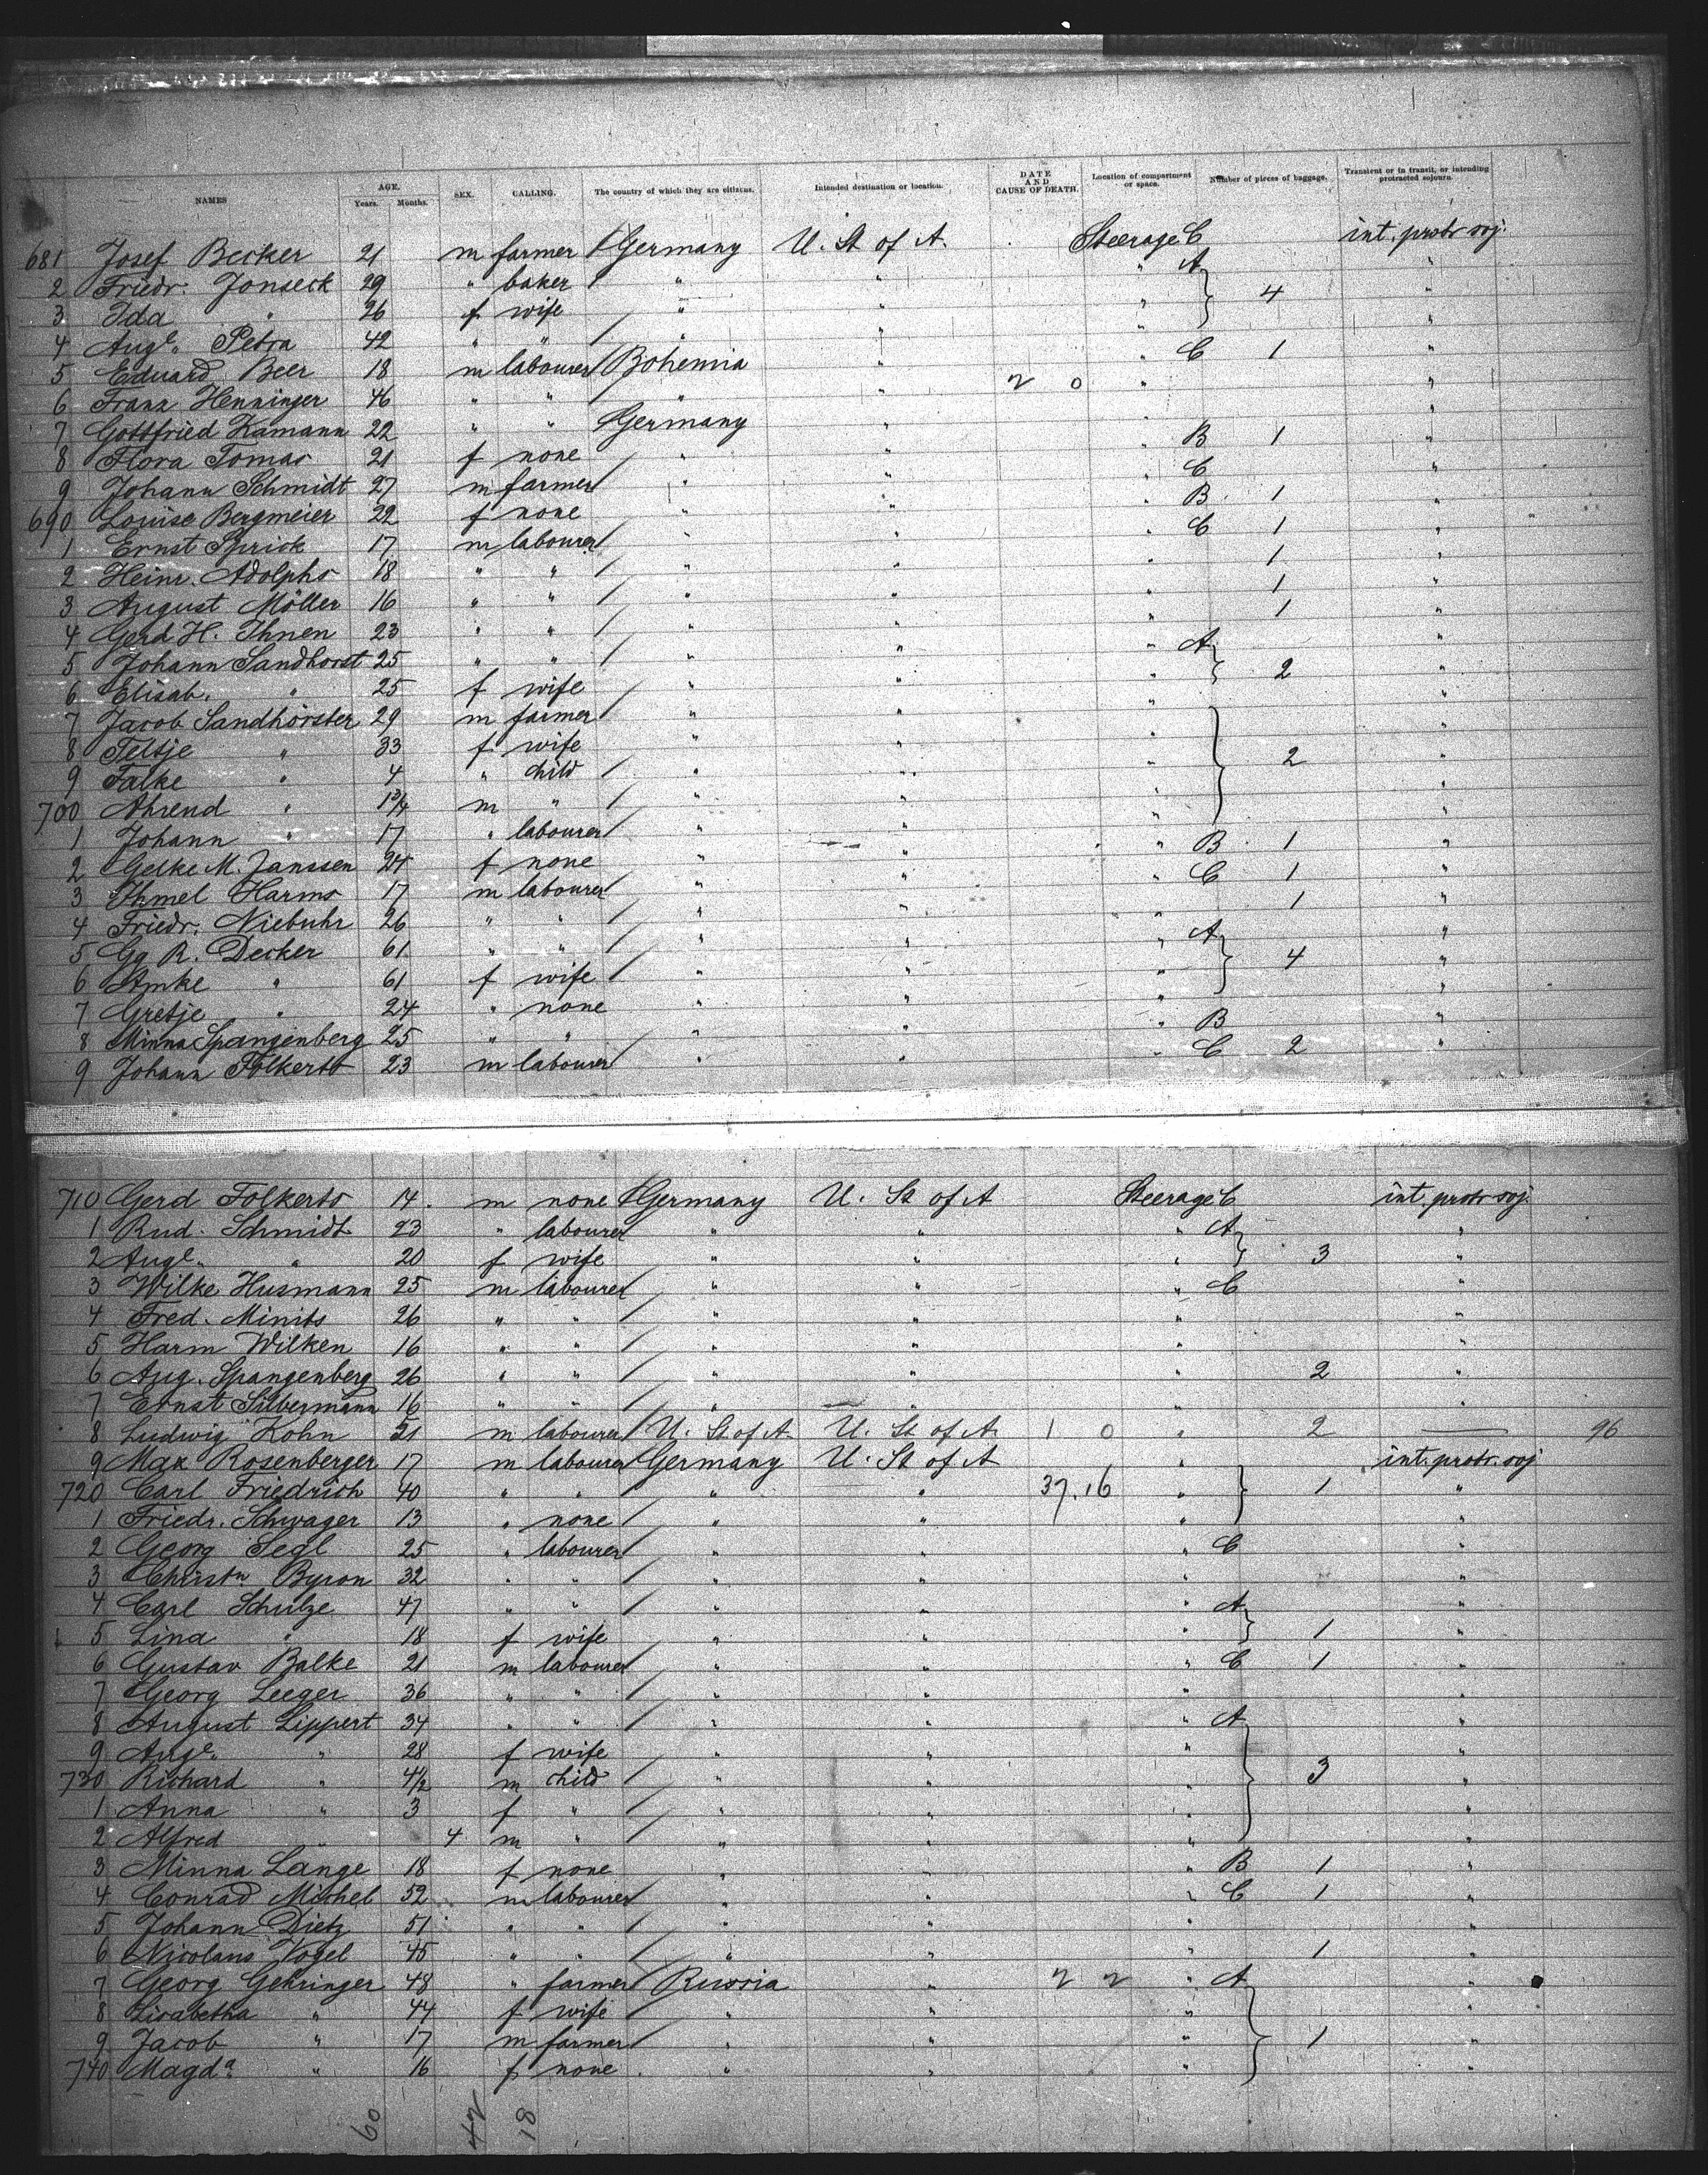 NAMES AGE. Years. Months. SEX. CALLING. The country of which they are citizens. Intended destination or location. DATE AND CAUSE OF DEATH. Location of compartment or space. Number of pieces of baggage. Transient or in transit, or intending protracted sojourn.
681 Josef Becker 21 m farmer / Germany U. St of A. Steerage C int. protr soj.
2 Friedr. Jonseck 29 " baker / " " " A } 4 "
3 Ida " 26 f wife / " " " "
4 Aug<sup>e</sup>. Petra 42 " " / " " " "
5 Eduard Beer 18 m labourer / Bohemia " " C 1 "
6 Franz Henninger 46 " " " " 2 0 " "
7 Gottfried Kamann 22 " " / Germany " "
8 Flora Tomas 21 f none / " " " B 1 "
9 Johann Schmidt 27 m farmer / " " " C "
690 Louise Bergmeier 22 f none / " " " B 1 "
1 Ernst Sprick 17 m labourer / " " " C 1 "
2 Heinr. Adolphs 18 " " / " " " 1 "
3 August Möller 16 " " / " " " 1 "
4 Gerd H. Ihnen 23 " " / " " " 1 "
5 Johann Sandhorst 25 " " / " " " A } 2 "
6 Elisab. " 25 f wife / " " " "
7 Jacob Sandhörster 29 m farmer / " " " } 2 "
8 Teltje " 33 f wife / " " " "
9 Falke " 4 " child / " " " "
700 Ahrend " 1 3/4 m " / " " " "
1 Johann " 17 " labourer / " " " "
2 Gelke M. Janssen 24 f none / " " " B 1 "
3 Ihmel Harms 17 m labourer / " " " C 1 "
4 Friedr. Niebuhr 26 " " / " " " 1 "
5 Gg R. Decker 61 " " / " " " A } 4 "
6 Amke " 61 f wife / " " " "
7 Gretje " 24 " none / " " " "
8 Minna Spangenberg 25 " " / " " " B "
9 Johann Folkerts 23 m labourer / " " " C 2 "
710 Gerd Folkerts 14 m none / Germany U. St of A Steerage C int. protr soj.
1 Rud. Schmidt 23 " labourer / " " " A } 3 "
2 Aug<sup>e</sup>. " 20 f wife / " " " "
3 Wilke Husmann 25 m labourer / " " " C "
4 Fred. Minits 26 " " / " " " "
5 Harm Wilken 16 " " / " " " "
6 Aug. Spangenberg 26 " " / " " " 2 "
7 Ernst Silbermann 16 " " / " " " "
8 Ludwig Kohn 51 m labourer / U. St of A. U. St of A. 1 0 " 2 — 96
9 Max Rosenberger 17 m labourer / Germany U. St of A " int. protr. soj
720 Carl Friedrich 40 " " / " " 37.16 " } 1 "
1 Friedr. Schwager 13 " none / " " " "
2 Georg Segl 25 " labourer / " " " C "
3 Christn Byron 32 " " / " " " "
4 Carl Schulze 47 " " / " " " A } "
5 Lina " 18 f wife " " " 1 "
6 Gustav Balke 21 m labourer / " " " C 1 "
7 Georg Leeger 36 " " / " " " "
8 August Lippert 34 " " / " " " A } "
9 Aug<sup>e</sup>. " 28 f wife / " " " "
730 Richard " 4 1/2 m child / " " " 3 "
1 Anna " 3 f " / " " " "
2 Alfred " 4 m " / " " " "
3 Minna Lange 18 f none / " " " B 1 "
4 Conrad Michel 52 m labourer / " " " C 1 "
5 Johann Dietz 51 " " / " " " "
6 Nicolaus Vogel 45 " " / " " " 1 "
7 Georg Gehringer 48 " farmer / Russia " 2 2 " A } "
8 Lisabetha " 44 f wife / " " " "
9 Jacob " 17 m farmer / " " " 1 "
740 Magd<sup>a</sup> " 16 f none " " " "
60 42 18